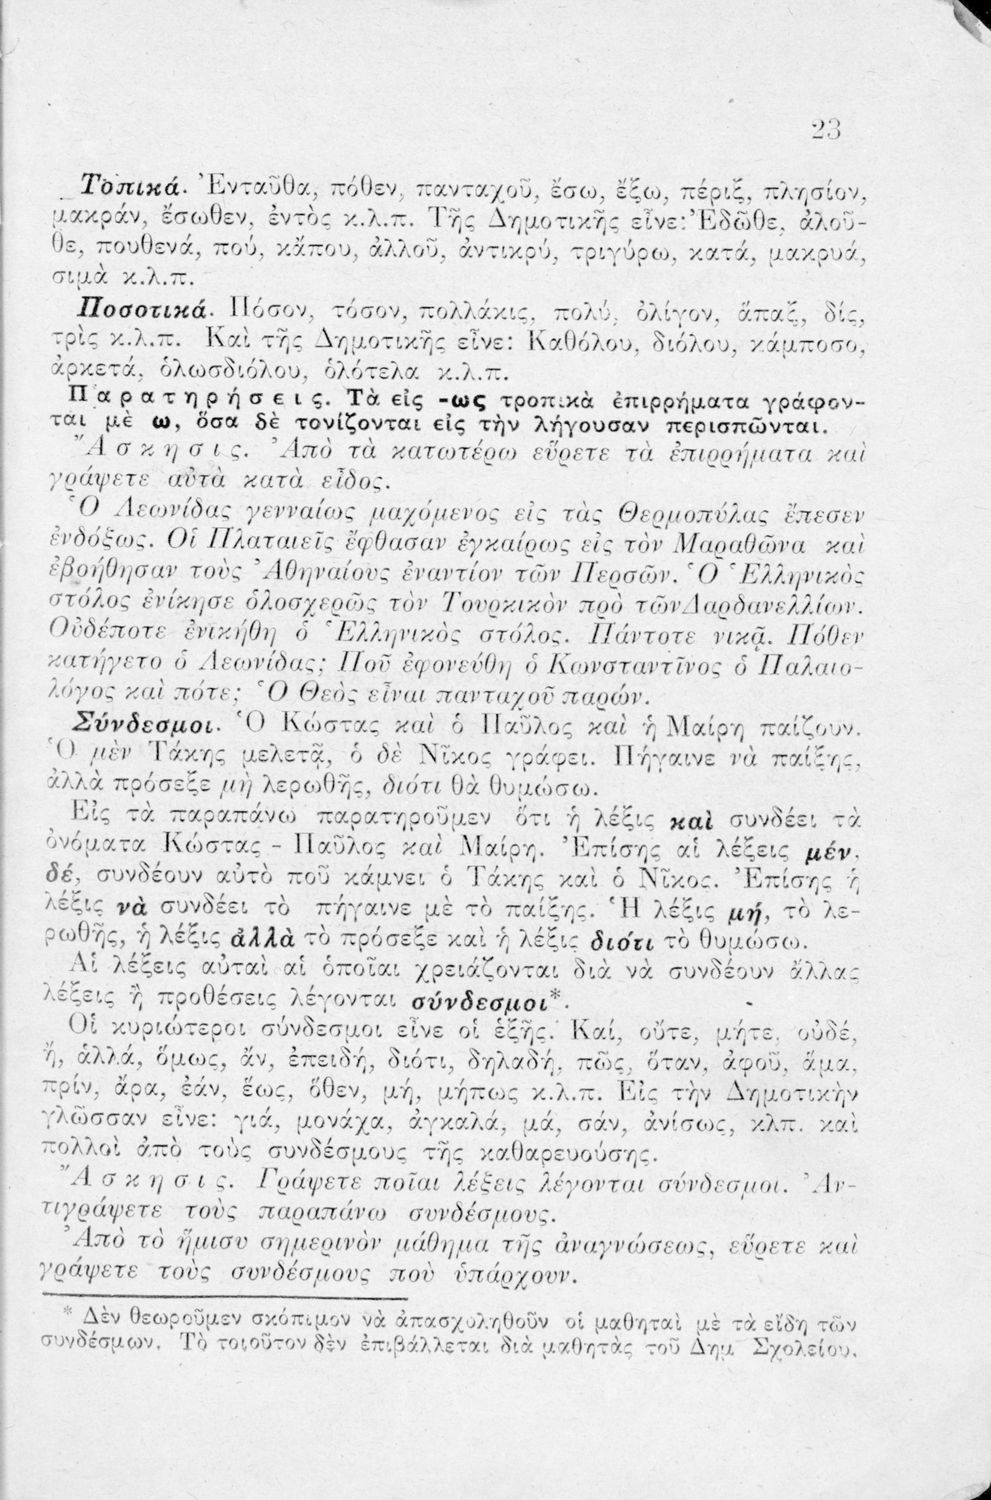 23
Τοπικά. Ἐνταῦθα, πόθεν, πανταχοῦ, ἔσω, ἔξω, πέριξ, πλησίον,
μακράν, ἔσωθεν, ἐντὸς κ.λ.π. Τῆς Δημοτικῆς εἶνε: Ἐδῶθε, ἀλοῦ-
θε, πουθενά, πού, κἄπου, ἀλλοῦ, ἀντικρύ, τριγύρω, κατά, μακρυά,
σιμὰ κ.λ.π.
Ποσοτικά. Πόσον, τόσον, πολλάκις, πολύ, ὀλίγον, ἅπαξ, δίς,
τρὶς κ.λ.π. Καὶ τῆς Δημοτικῆς εἶνε: Καθόλου, διόλου, κάμποσο,
ἀρκετά, ὁλωσδιόλου, ὁλότελα κ.λ.π.
Παρατηρήσεις. Τὰ εἰς -ως τροπικὰ ἐπιρρήματα γράφον-
ται μὲ ω, ὅσα δὲ τονίζονται εἰς τὴν λήγουσαν περισπῶνται.
Ἄσκησις. Ἀπὸ τὰ κατωτέρω εὕρετε τὰ ἐπιρρήματα καὶ
γράψετε αὐτὰ κατὰ εἶδος.
Ὁ Λεωνίδας γενναίως μαχόμενος εἰς τὰς Θερμοπύλας ἔπεσεν
ἐνδόξως. Οἱ Πλαταιεῖς ἔφθασαν ἐγκαίρως εἰς τὸν Μαραθῶνα καὶ
ἐβοήθησαν τοὺς Ἀθηναίους ἐναντίον τῶν Περσῶν. Ὁ Ἑλληνικὸς
στόλος ἐνίκησε ὁλοσχερῶς τὸν Τουρκικὸν πρὸ τῶν Δαρδανελλίων.
Οὐδέποτε ἐνικήθη ὁ Ἑλληνικὸς στόλος. Πάντοτε νικᾷ. Πόθεν
κατήγετο ὁ Λεωνίδας; Ποῦ ἐφονεύθη ὁ Κωνσταντῖνος ὁ Παλαιο-
λόγος καὶ πότε; Ὁ Θεὸς εἶναι πανταχοῦ παρών.
Σύνδεσμοι. Ὁ Κώστας καὶ ὁ Παῦλος καὶ ἡ Μαίρη παίζουν.
Ὁ μὲν Τάκης μελετᾷ, ὁ δὲ Νῖκος γράφει. Πήγαινε νὰ παίξῃς,
ἀλλὰ πρόσεξε μὴ λερωθῇς, διότι θὰ θυμώσω.
Εἰς τὰ παραπάνω παρατηροῦμεν ὅτι ἡ λέξις καὶ συνδέει τὰ
ὀνόματα Κώστας - Παῦλος καὶ Μαίρη. Ἐπίσης αἱ λέξεις μέν,
δέ, συνδέουν αὐτὸ ποῦ κάμνει ὁ Τάκης καὶ ὁ Νῖκος. Ἐπίσης ἡ
λέξις νὰ συνδέει τὸ πήγαινε μὲ τὸ παίξῃς. Ἡ λέξις μή, τὸ λε-
ρωθῇς, ἡ λέξις ἀλλὰ τὸ πρόσεξε καὶ ἡ λέξις διότι τὸ θυμώσω.
Αἱ λέξεις αὐταὶ αἱ ὁποῖαι χρειάζονται διὰ νὰ συνδέουν ἄλλας
λέξεις ἢ προθέσεις λέγονται σύνδεσμοι*.
Οἱ κυριώτεροι σύνδεσμοι εἶνε οἱ ἑξῆς: Καί, οὔτε, μήτε, οὐδέ,
ἤ, ἀλλά, ὅμως, ἄν, ἐπειδή, διότι, δηλαδή, πῶς, ὅταν, ἀφοῦ, ἅμα,
πρίν, ἄρα, ἐάν, ἕως, ὅθεν, μή, μήπως κ.λ.π. Εἰς τὴν Δημοτικὴν
γλῶσσαν εἶνε: γιά, μονάχα, ἀγκαλά, μά, σάν, ἀνίσως, κλπ. καὶ
πολλοὶ ἀπὸ τοὺς συνδέσμους τῆς καθαρευούσης.
Ἄσκησις. Γράψετε ποῖαι λέξεις λέγονται σύνδεσμοι. Ἀν-
τιγράψετε τοὺς παραπάνω συνδέσμους.
Ἀπὸ τὸ ἥμισυ σημερινὸν μάθημα τῆς ἀναγνώσεως, εὕρετε καὶ
γράψετε τοὺς συνδέσμους ποὺ ὑπάρχουν.
* Δὲν θεωροῦμεν σκόπιμον νὰ ἀπασχοληθοῦν οἱ μαθηταὶ μὲ τὰ εἴδη τῶν
συνδέσμων. Τὸ τοιοῦτον δὲν ἐπιβάλλεται διὰ μαθητὰς τοῦ Δημ Σχολείου.